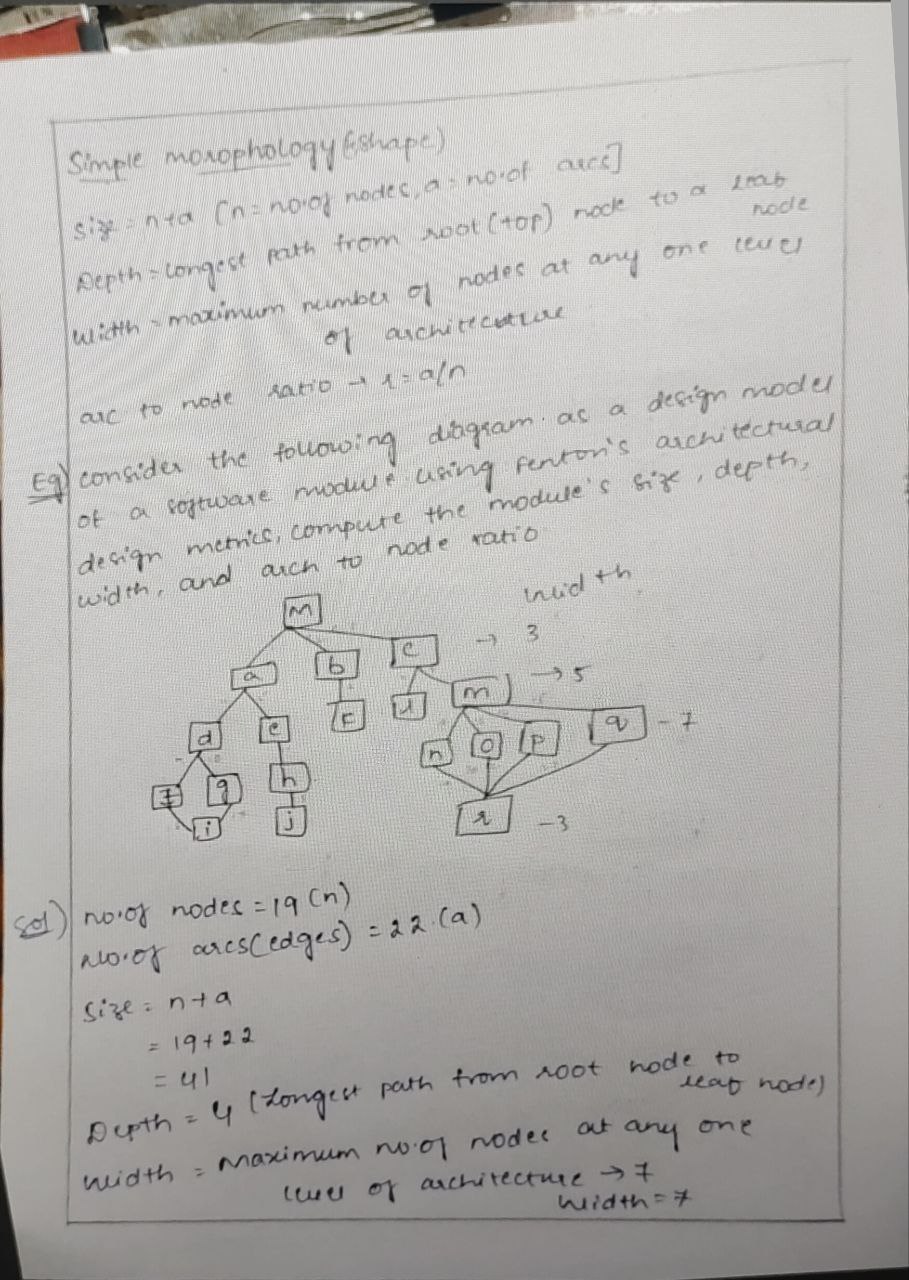 Simple morophology (shape)
size = n+a [n = no.of nodes, a = no.of arcs]
Depth = longest path from root (top) node to a leaf
node
Width = maximum number of nodes at any one level
of architecuture
arc to node ratio → r = a/n
Eg) consider the following diagram. as a design model
of a software module using Fenton's architectural
design metrics, compute the module's size, depth,
width, and arch to node ratio
width
M
→ 3
a b c
→ 5
d e k l m
f g h n o p q - 7
i j r - 3
Sol) no.of nodes = 19 (n)
No.of arcs(edges) = 22 (a)
Size = n+a
= 19+22
= 41
Depth = 4 (longest path from root node to
leaf node)
Width = Maximum no.of nodes at any one
level of architecture → 7
Width = 7